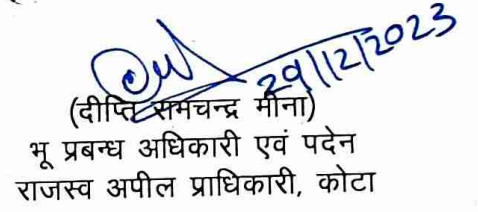 29/12/2023
(दीप्ति रामचन्द्र मीना)
भू प्रबन्ध अधिकारी एवं पदेन
राजस्व अपील प्राधिकारी, कोटा